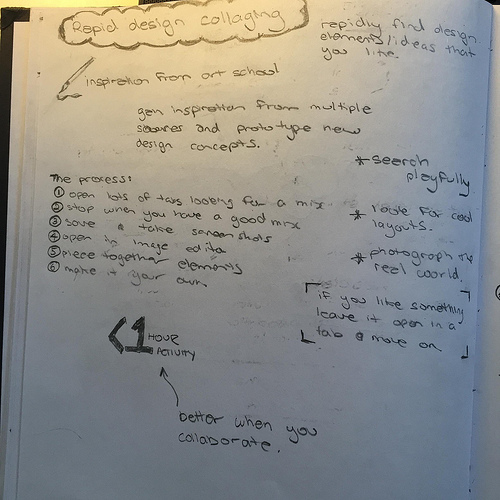 Rapid design collaging
rapidly find design
elements/ideas that
you like.
inspiration from art school
gain inspiration from multiple
sources and prototype new
design concepts.
* search
playfully
The process:
① open lots of tabs looking for a mix
② stop when you have a good mix
③ save & take screenshots
④ open in image editor
⑤ piece together elements
⑥ make it your own
* look for cool
layouts.
* photograph the
real world.
if you like something
leave it open in a
tab & move on
<1 HOUR
ACTIVITY
better when you
collaborate.